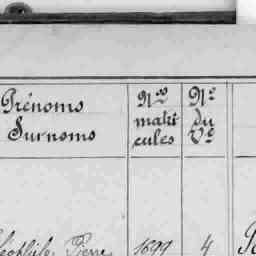 Prénoms
Surnoms
Nos
matri
cules
No
du
Vé
Théophile Pierre 1699 4